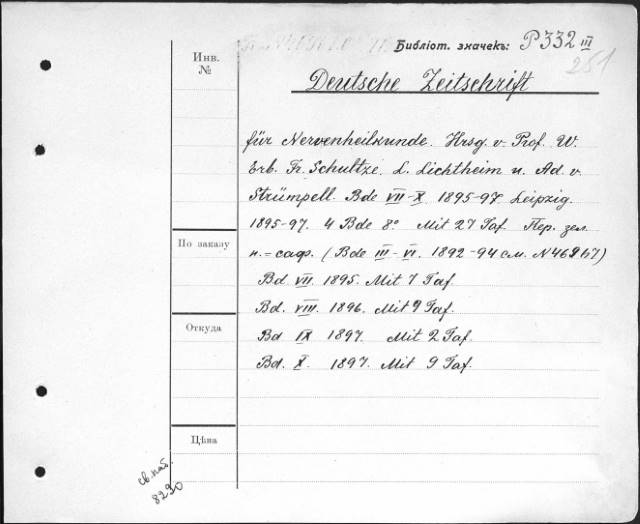 Библіот. значекъ: P332 III
251
Инв. №
Deutsche Zeitschrift
für Nervenheilkunde. Hrsg. v. Prof. W.
Erb. Fr. Schultze. L. Lichtheim u. Ad. v.
Strümpell. Bde VII-X 1895-97 Leipzig.
1895-97. 4 Bde 8º. Mit 27 Taf. Пер. зел.
к.=саф. (Bde III-VI. 1892-94 см. N 469
По заказу
Bd. VII. 1895. Mit 7 Taf.
Bd. VIII. 1896. Mit 9 Taf.
Откуда
Bd IX 1897. Mit 2 Taf.
Bd. X. 1897. Mit 9 Taf.
Цѣна
8290